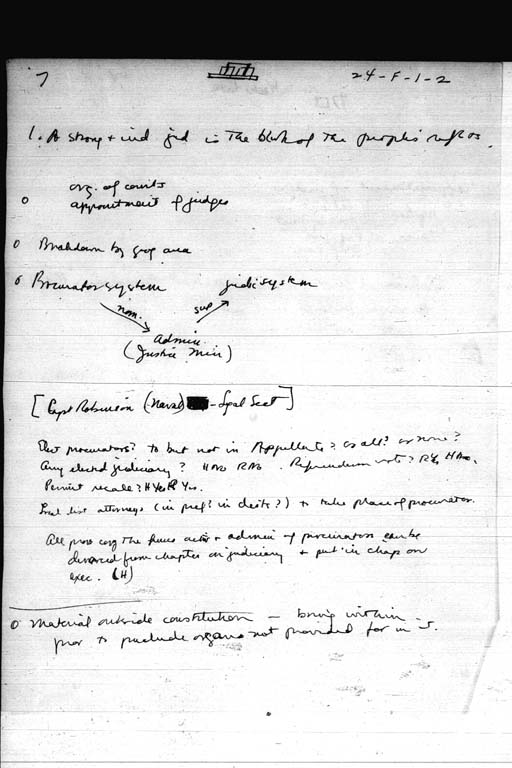 7
24-F-1-2
1. A strong + ind jud is the of the people's
org. of courts
o appointment of judges
o Breakdown by area
o Procurator system
system
nom.
sup
Admin.
(Justice Min)
[Capt Robinson (Naval) - Sect]
Elect procurators? to but not in Appellants? or all? or none?
Any elected judiciary? H No R No. Referendum vote? R Yes, H No.
Permit recall? H Yes R Yes.
attorneys (in pref? in dists?) to take place of procurator.
All prov the + admin of procurators can be
divorced from chapter on judiciary + put in chap on
exec. (H)
o Material outside constitution — bring within
prov to preclude organs not provided for in it.